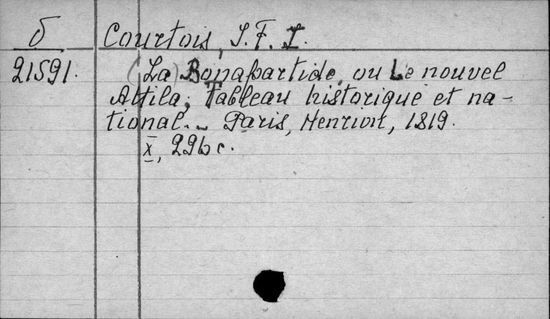 б Courtois, J. F. I.
21591. (La) Bonapartide, ou Le nouvel
Attila; Tableau historique et na-
tional. – Paris, Henrion, 1819.
X, 226 с.